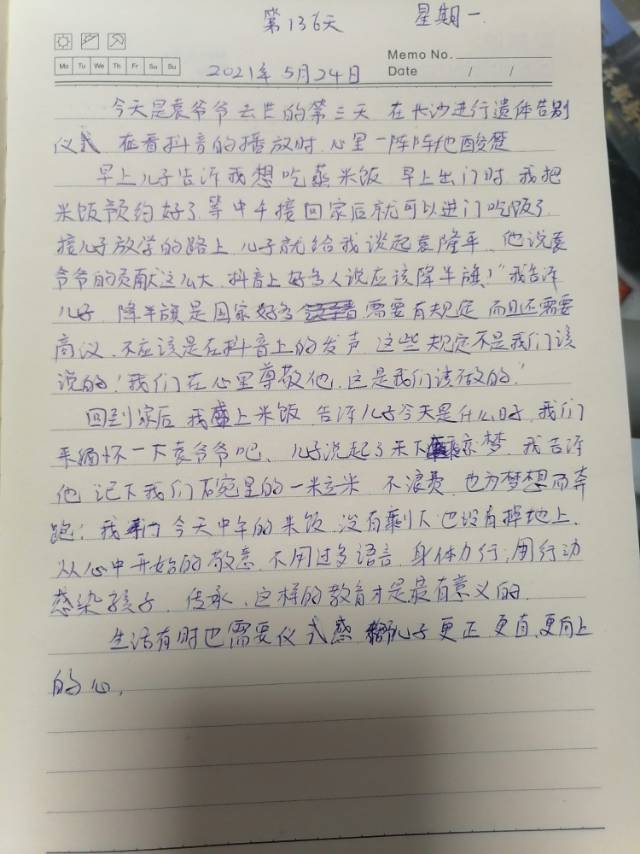 第136天 星期一.
Memo No.
Mo Tu We Th Fr Sa Su
2021年5月24日 Date / /
今天是袁爷爷去世的第三天 在长沙进行遗体告别
仪式 在看抖音的播放时 心里一阵阵地酸楚
早上儿子告诉我想吃蒸米饭 早上出门时 我把
米饭预约好了 等中午接回家后就可以进门吃饭了
接儿子放学的路上 儿子就给我谈起袁隆平、他说袁
爷爷的贡献这么大 抖音上好多人说应该降半旗!"我告诉
儿子 降半旗是国家好多 需要有规定 而且还需要
商议 不应该是在抖音上的发声 这些规定不是我们该
说的!我们在心里尊敬他、这是我们该做的!
回到家后 我盛上米饭 告诉儿子今天是什么日子、我们
来缅怀一下袁爷爷吧、儿子说起了禾下乘凉梦、我告诉
他 记下我们石宛里的一米立米 不浪费 也为梦想而奔
跑; 我们今天中午的米饭 没有剩下也没有掉地上、
从心中开始的敬意 不用过多语言 身体力行,用行动
感染孩子 传承、这样的教育才是最有意义的
生活有时也需要仪式感 儿子更正 更直、更向上
的心,